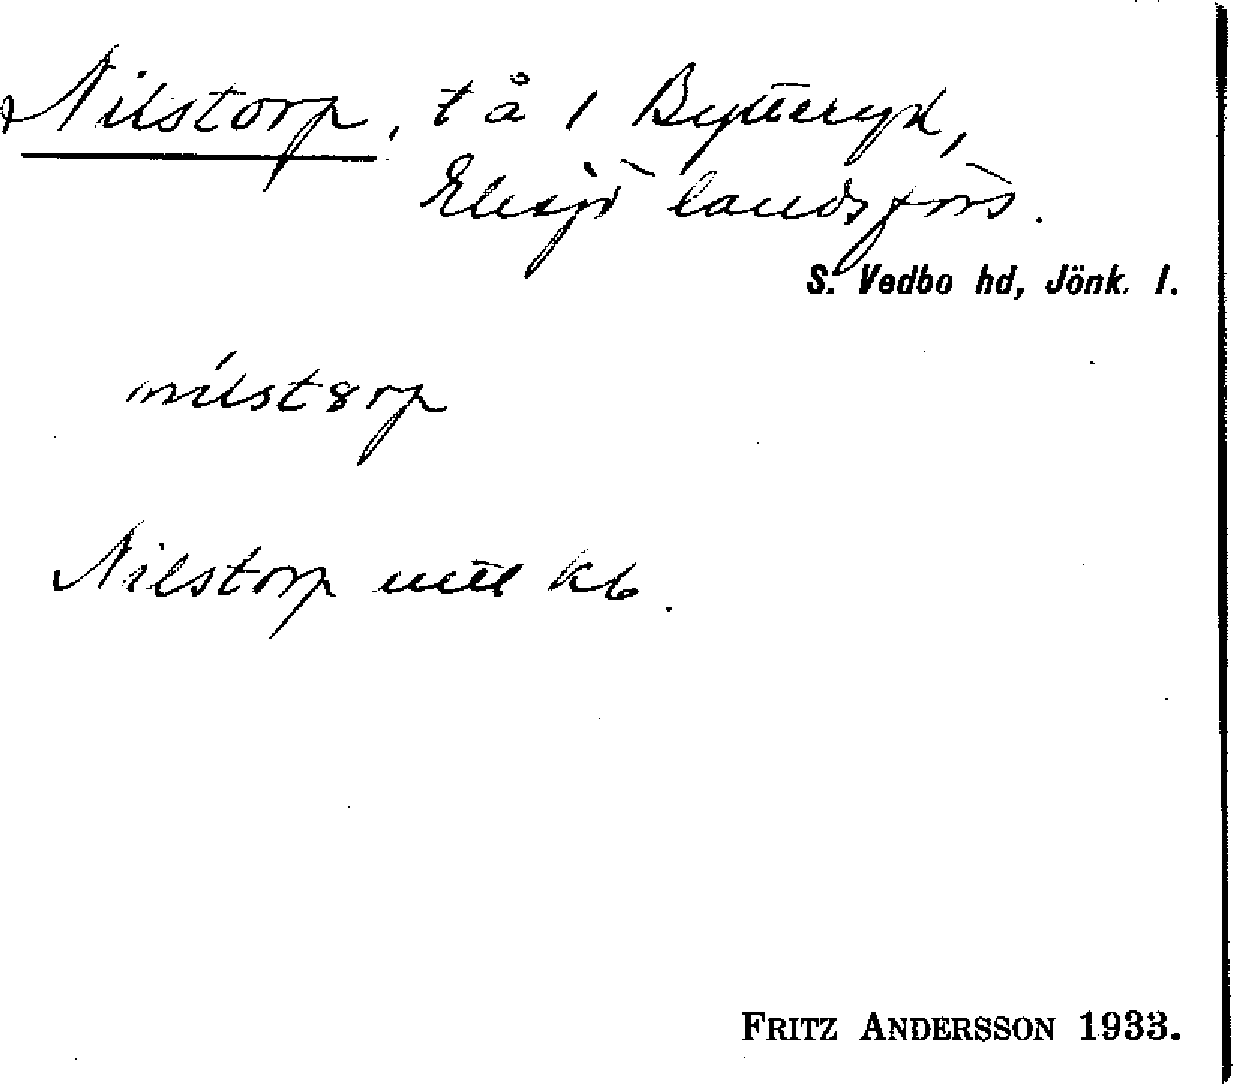 Nilstorp, t å 1 Bytteryd,
Eksjö landsförs.
S. Vedbo hd, Jönk. l.
nilstorp
Nilstorp utt kb.
FRITZ ANDERSSON 1933.